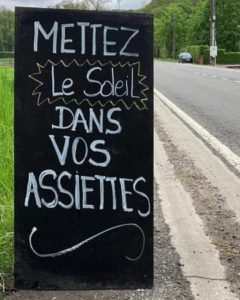 METTEZ
Le Soleil
DANS
VOS
ASSIETTES